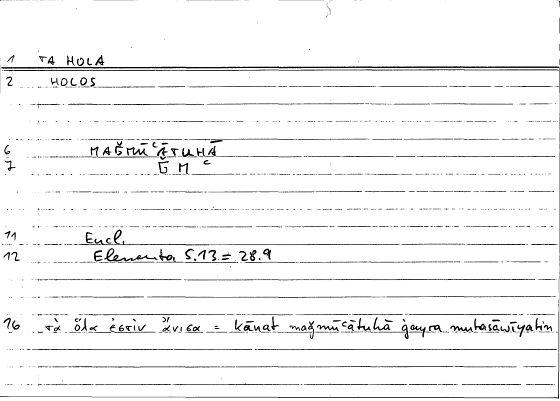 1 TA HOLA
2 HOLOS
6 MAǦMŪʿĀTUHĀ
7 Ǧ M ʿ
11 Eucl.
12 Elementa 5.13 = 28.9
16 τὰ ὅλα ἐστὶν ἄνισα = kānat maǧmūʿātuhā ġayra mutasāwīyatin